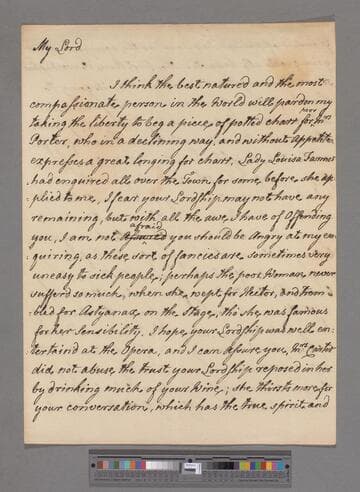 My Lord
I think the best natured and the most
compassionate person in the World will pardon my
taking the liberty to beg a piece of potted charr for Mrs
Porter, who in a declining way, and without Appetite
expresses a great longing for charr, Lady Louisa
had enquired all over the Town for some, before she ap
plied to me, I fear your Lordship may not have any
remaining, but with all the awe I have of Offending
afraid
you, I am not you should be Angry at my en
quiring, as these sort of fancies are sometimes very
uneasy to sick people; perhaps the poor Woman never
sufferd so much, when she wept for Hector, and trem
bled for Astyanax, on the Stage, tho' she was famous
for her Sensibility. I hope your Lordship was well en
tertaind at the Opera, and I can assure you, Mrs Carter
did not abuse the trust your Lordship reposed in her
by drinking much of your Wine; she thirsts more for
your conversation, which has the true spirit and